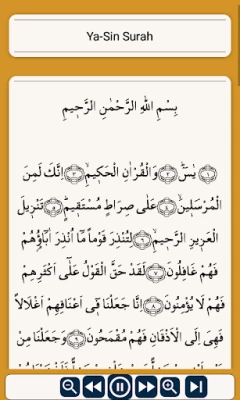 Ya-Sin Surah
بِسْمِ اللهِ الرَّحْمٰنِ الرَّحٖيمِ
﴿١﴾ يٰسٓ ﴿٢﴾ وَالْقُرْاٰنِ الْحَكٖيمِ ﴿٣﴾ اِنَّكَ لَمِنَ
الْمُرْسَلٖينَ ﴿٤﴾ عَلٰى صِرَاطٍ مُسْتَقٖيمٍ ﴿٥﴾ تَنْزٖيلَ
الْعَزٖيزِ الرَّحٖيمِ ﴿٦﴾ لِتُنْذِرَ قَوْماً مَٓا اُنْذِرَ اٰبَٓاؤُهُمْ
فَهُمْ غَافِلُونَ ﴿٧﴾ لَقَدْ حَقَّ الْقَوْلُ عَلٰٓى اَكْثَرِهِمْ
فَهُمْ لَا يُؤْمِنُونَ ﴿٨﴾ اِنَّا جَعَلْنَا فٖٓى اَعْنَاقِهِمْ اَغْلَالاً
فَهِىَ اِلَى الْاَذْقَانِ فَهُمْ مُقْمَحُونَ ﴿٩﴾ وَجَعَلْنَا مِنْ